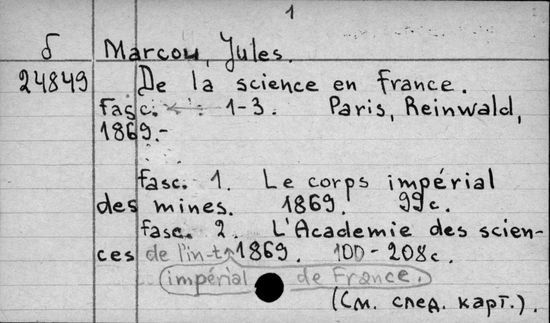 1
δ Marcou, Jules.
24849 De la science en France.
Fasc. 1-3. Paris, Reinwald,
1869.-
Fasc. 1. Le corps impérial
des mines. 1869. 99 c.
Fasc. 2. L'Academie des scien-
ces de l'in-t 1869. 100-208 c.
impérial de France.
(См. след. карт.).